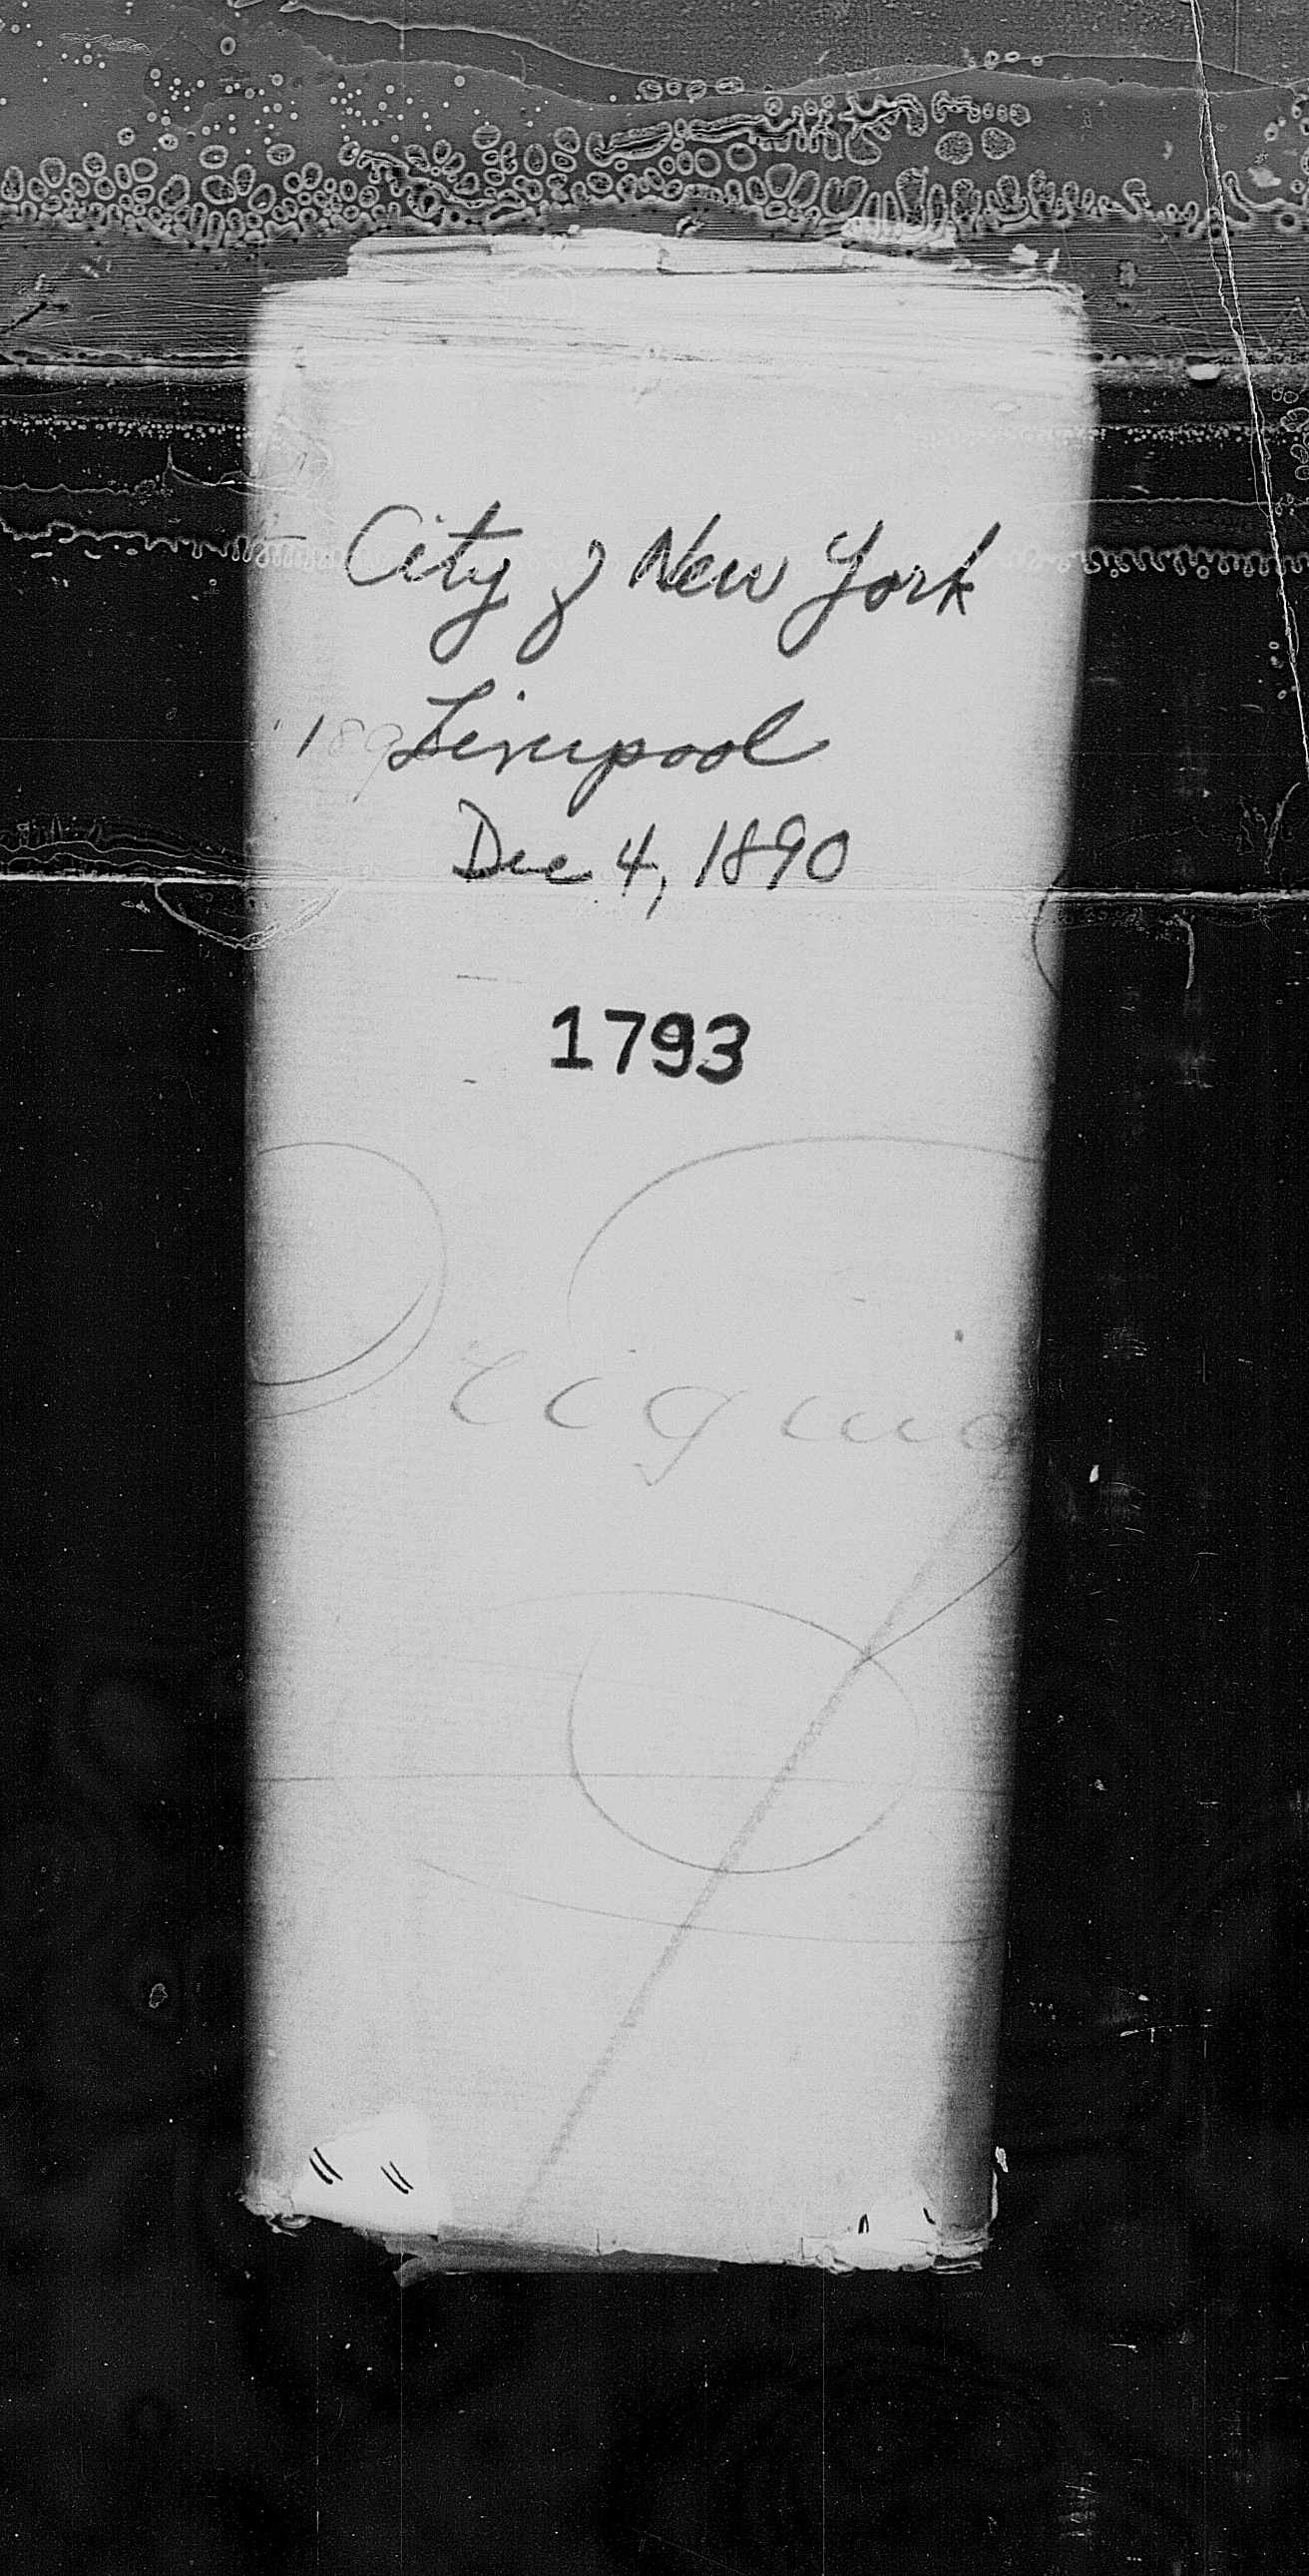 City of New York
Liverpool
Dec 4, 1890
1793